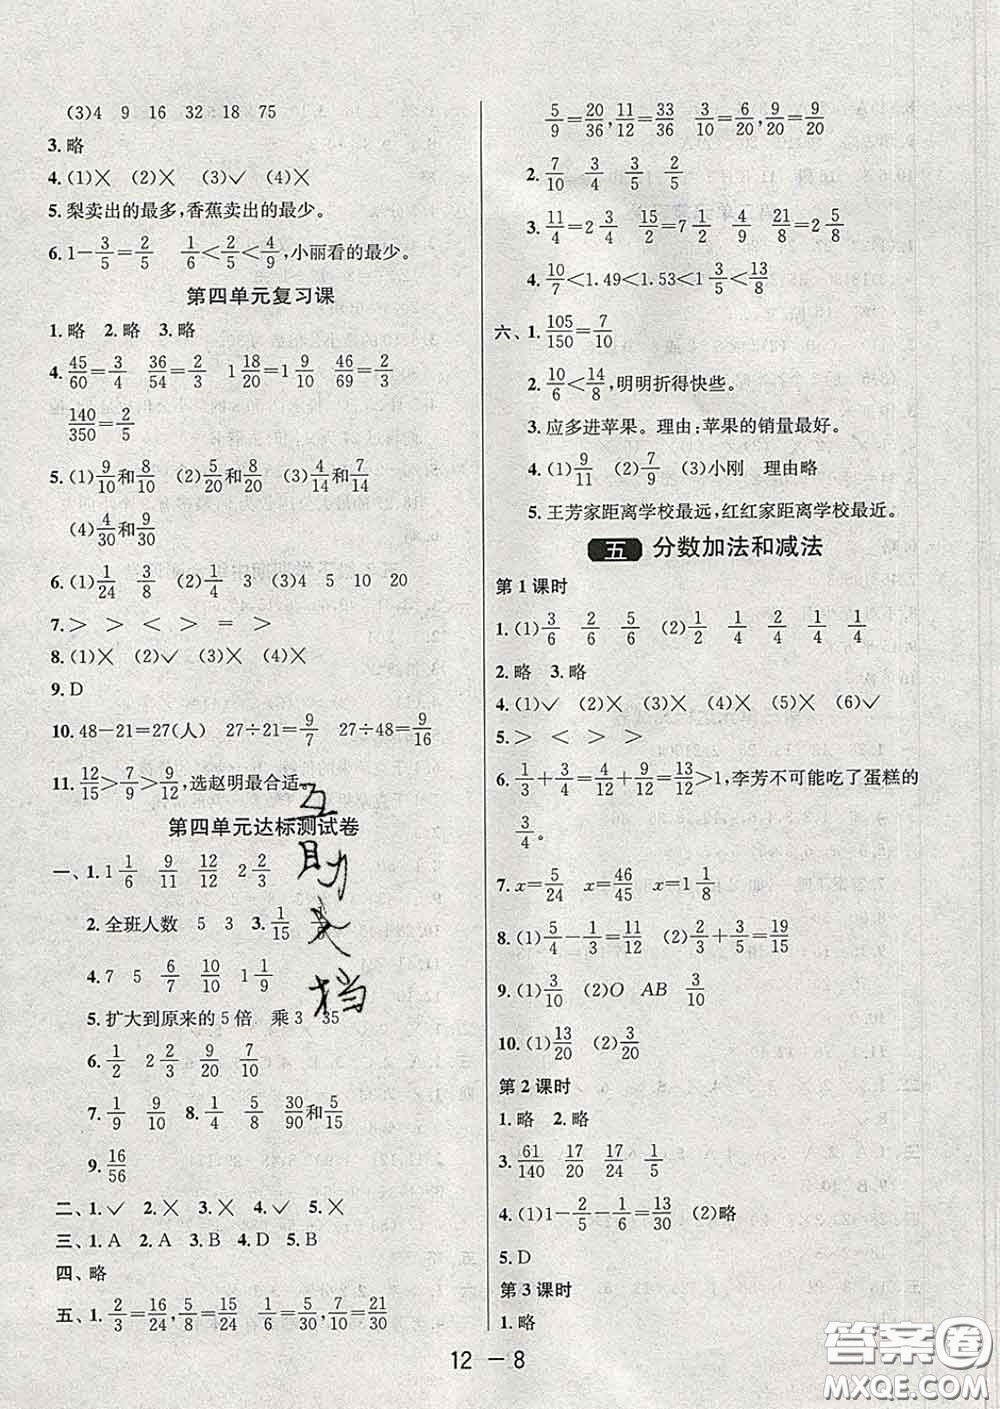 (3)4 9 16 32 18 75
3.略
4.(1)✕ (2)✕ (3)✓ (4)✕
5.梨卖出的最多,香蕉卖出的最少。
6.1－3/5＝2/5 1/6＜2/5＜4/9,小丽看的最少。
第四单元复习课
1.略 2.略 3.略
4.45/60＝3/4 36/54＝2/3 1 18/20＝1 9/10 46/69＝2/3
140/350＝2/5
5.(1)9/10和8/10 (2)5/20和8/20 (3)4/14和7/14
(4)4/30和9/30
6.(1)1/24 (2)1/5 (3)4 5 10 20
7.＞ ＞ ＜ ＞ ＝ ＞
8.(1)✕ (2)✓ (3)✕ (4)✕
9.D
10.48－21＝27(人) 27÷21＝9/7 27÷48＝9/16
11.12/15＞7/9＞9/12,选赵明最合适
第四单元达标测试卷
一、1.1 1/6 9/11 12/12 2 2/3
2.全班人数 5 3 3.1/15
4.7 5 6/7 10/10 1 1/9
5.扩大到原来的5倍 乘3 35
6.1/2 2/2 9/20 7/10
7.1/9 9/10 8.1/4 5/8 30/90和5/15
9.16/56
二、1.✓ 2.✕ 3.✕ 4.✓ 5.✕
三、1.A 2.A 3.B 4.D 5.B
四、略
五、1.2/3＝16/24,5/8＝15/24 3/10＝9/30,7/10＝21/30
5/9＝20/36,11/12＝33/36 3/10＝6/20,9/20＝9/20
2.7/10 3/4 3/5 4/5
3.11/4＝2 3/4 15/2＝7 1/2 29/4＝7 1/4 17/8＝2 1/8
4.7/10＜1.49＜1.53＜1 3/5＜13/8
六、1.105/150＝7/10
2.10/6＜14/8,明明折得快些。
3.应多进苹果。理由:苹果的销量最好。
4.(1)9/11 (2)7/9 (3)小刚 理由略
5.王芳家距离学校最远,红红家距离学校最近。
五 分数加法和减法
第1课时
1.(1)3/6 2/6 5/6 (2)1/2 1/4 2/4 1/4 1/4
2.略 3.略
4.(1)✓ (2)✕ (3)✕ (4)✕ (5)✕ (6)✓
5.＞ ＜ ＞ ＞
6.1/3＋3/4＝4/12＋9/12＝13/12＞1,李芳不可能吃了蛋糕的
3/4。
7.x＝5/24 x＝46/45 x＝1 1/8
8.(1)5/4－1/3＝11/12 (2)2/3＋3/5＝19/15
9.(1)3/10 (2)O AB 3/10
10.(1)13/20 (2)3/20
第2课时
1.略 2.略
3.61/140 17/20 17/24 1/5
4.(1)1－2/5－1/6＝13/30 (2)略
5.D
第3课时
1.略
互助文档
12－8
答案圈
MXQE.COM